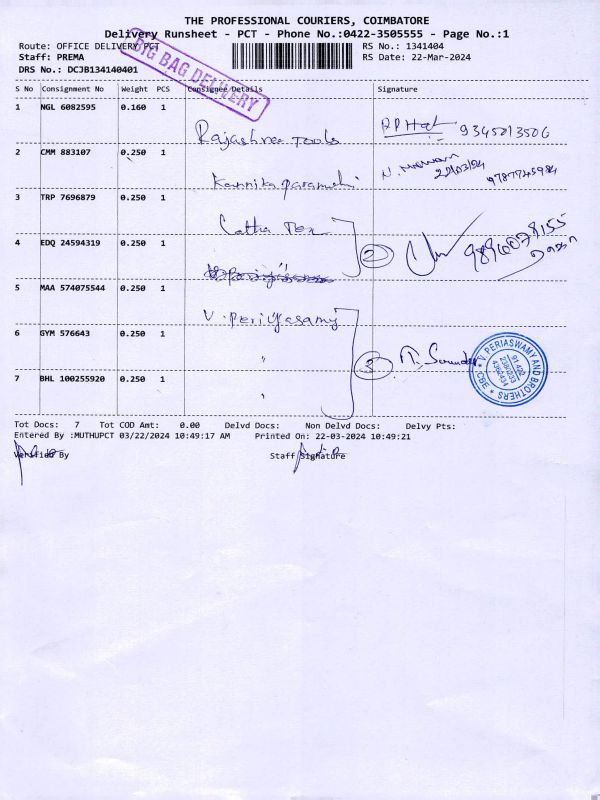 THE PROFESSIONAL COURIERS, COIMBATORE
Delivery Runsheet - PCT - Phone No.:0422-3505555 - Page No.:1
Route: OFFICE DELIVERY PCT
RS No.: 1341404
Staff: PREMA
RS Date: 22-Mar-2024
DRS No.: DCJB134140401
BIG BAG DELIVERY
S No Consignment No Weight PCS Consignee Details Signature
1 NGL 6082595 0.160 1
Rajashree Tools 9345013506
2 CMM 883107 0.250 1
Kannika parameshi
3 TRP 7696879 0.250 1
Tex
4 EDQ 24594319 0.250 1
2
5 MAA 574075544 0.250 1
V. periyasamy
6 GYM 576643 0.250 1
"
3
V. PERIASWAMY AND BROTHERS
CBE
7 BHL 100255920 0.250 1
"
Tot Docs: 7 Tot COD Amt: 0.00 Delvd Docs: Non Delvd Docs: Delvy Pts:
Entered By :MUTHUPCT 03/22/2024 10:49:17 AM Printed On: 22-03-2024 10:49:21
Verified By Staff Signature